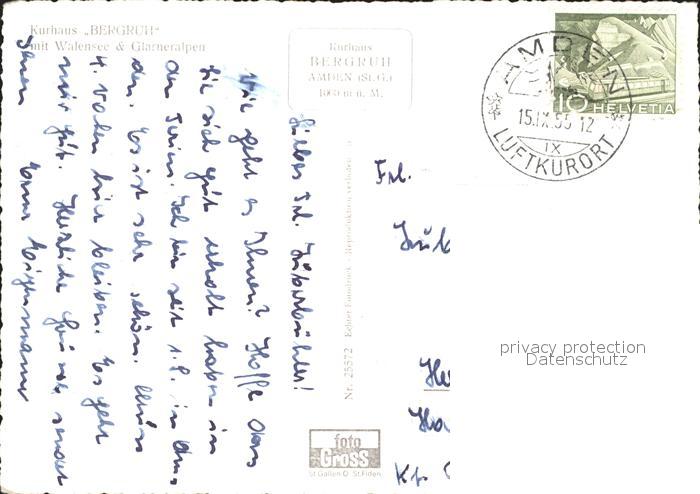 Kurhaus „BERGRUH"
mit Walensee & Glarneralpen
Kurhaus
BERGRUH
AMDEN (St. G.)
1000 m ü. M.
AMDEN
15.IX.55 12
IX
LUFTKURORT
10 HELVETIA
Liebes Frl.
Wie geht es Ihnen? Hoffe dass
Sie sich gut erholt haben in
den Ferien. Ich bin seit 1.9. in Am
den. Es ist sehr schön.
4. Wochen hier bleiben. Es geht
mir gut. Herzliche Grüsse sendet
Ihnen
Nr. 25572 Echter Fotodruck - Reproduktion verboten
foto
Gross
St.Gallen O St.Fiden
Frl.
privacy protection
Datenschutz